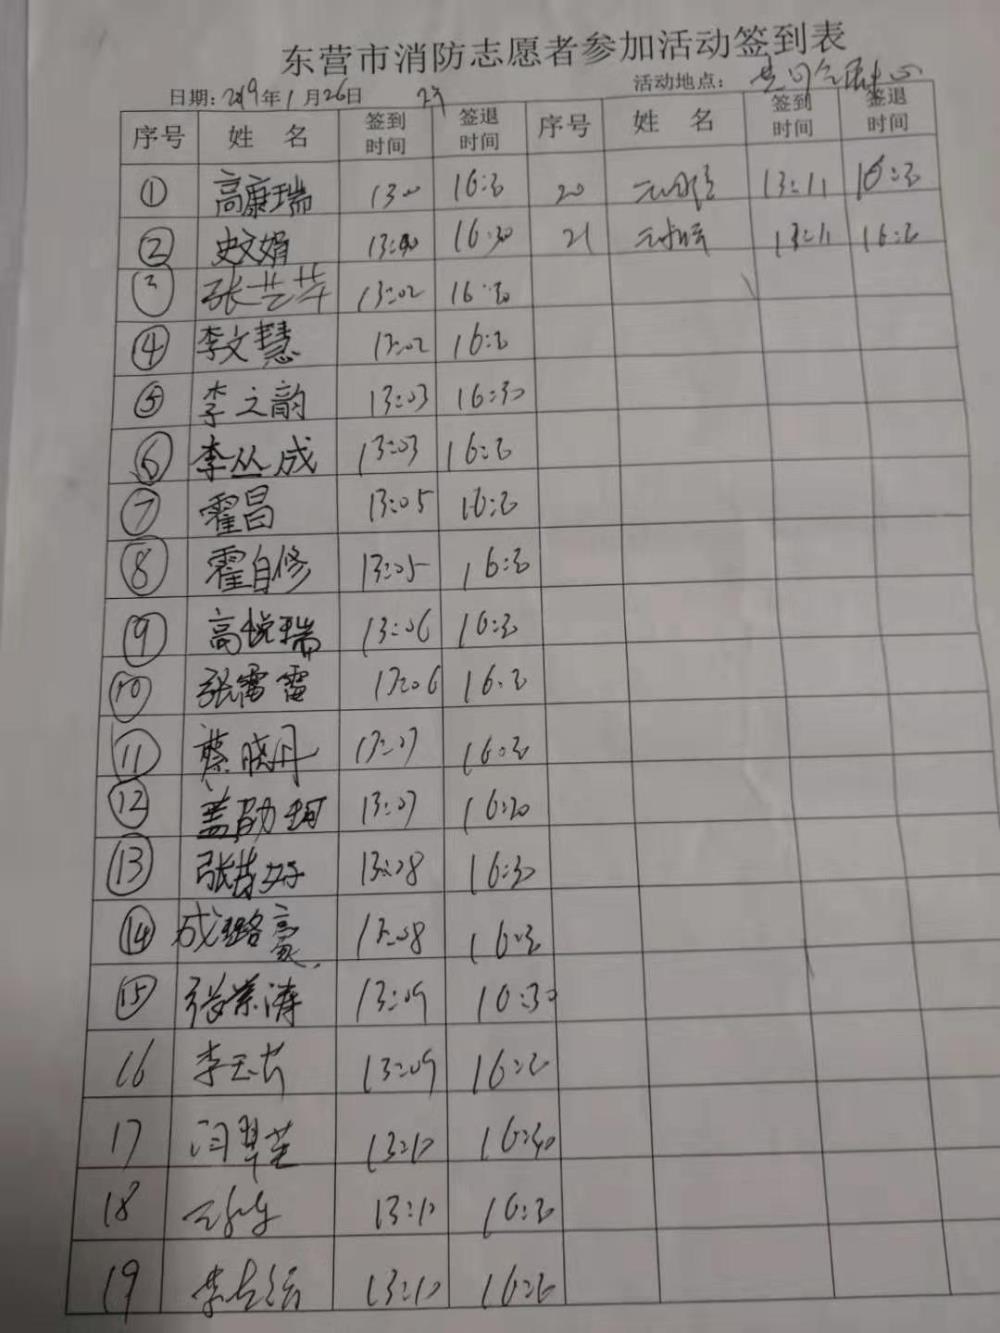 东营市消防志愿者参加活动签到表
日期：2019年1月26日 活动地点：
序号 姓 名 签到时间 签退时间 序号 姓 名 签到时间 签退时间
① 高康瑞 13:00 16:30 20 13:11 16:30
② 史文娟 13:00 16:30 21 13:11 16:30
③ 张芸芸 13:02 16:30
④ 李文慧 13:02 16:30
⑤ 李之韵 13:03 16:30
⑥ 李丛成 13:03 16:30
⑦ 霍昌 13:05 16:30
⑧ 霍自修 13:05 16:30
⑨ 高悦瑞 13:06 16:30
⑩ 张雷雷 13:06 16:30
⑪ 蔡晓丹 13:07 16:30
⑫ 盖勋珂 13:07 16:30
⑬ 13:08 16:30
⑭ 成璐豪 13:08 16:30
⑮ 张荣涛 13:09 16:30
16 13:09 16:30
17 闫翠芝 13:10 16:30
18 13:10 16:30
19 13:10 16:30